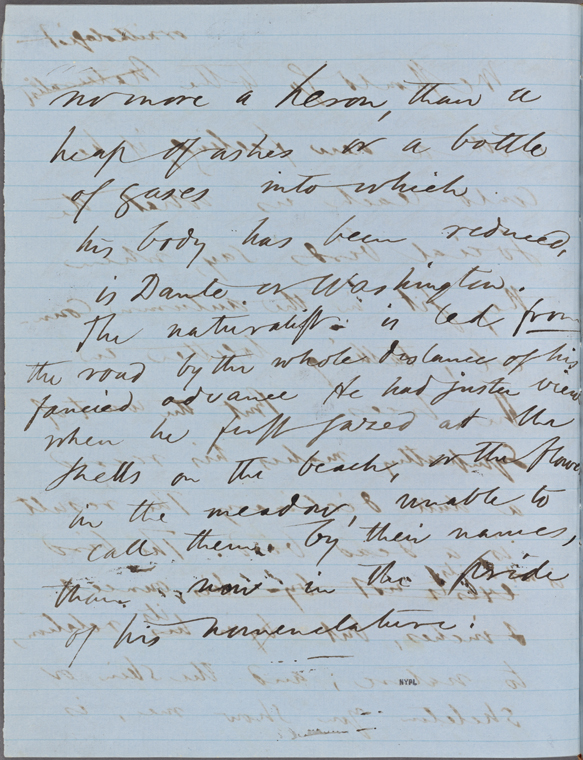 no more a heron, than a
heap of ashes or a bottle
of gases into which
his body has been reduced,
is Dante or Washington.
The naturalist is led from
the road by the whole distance of his
fancied advance He had juster view
when he first gazed at the
shells on the beach, or the flowe
in the meadow, unable to
call them by their names,
than now in the pride
of his nomenclature.
NYPL